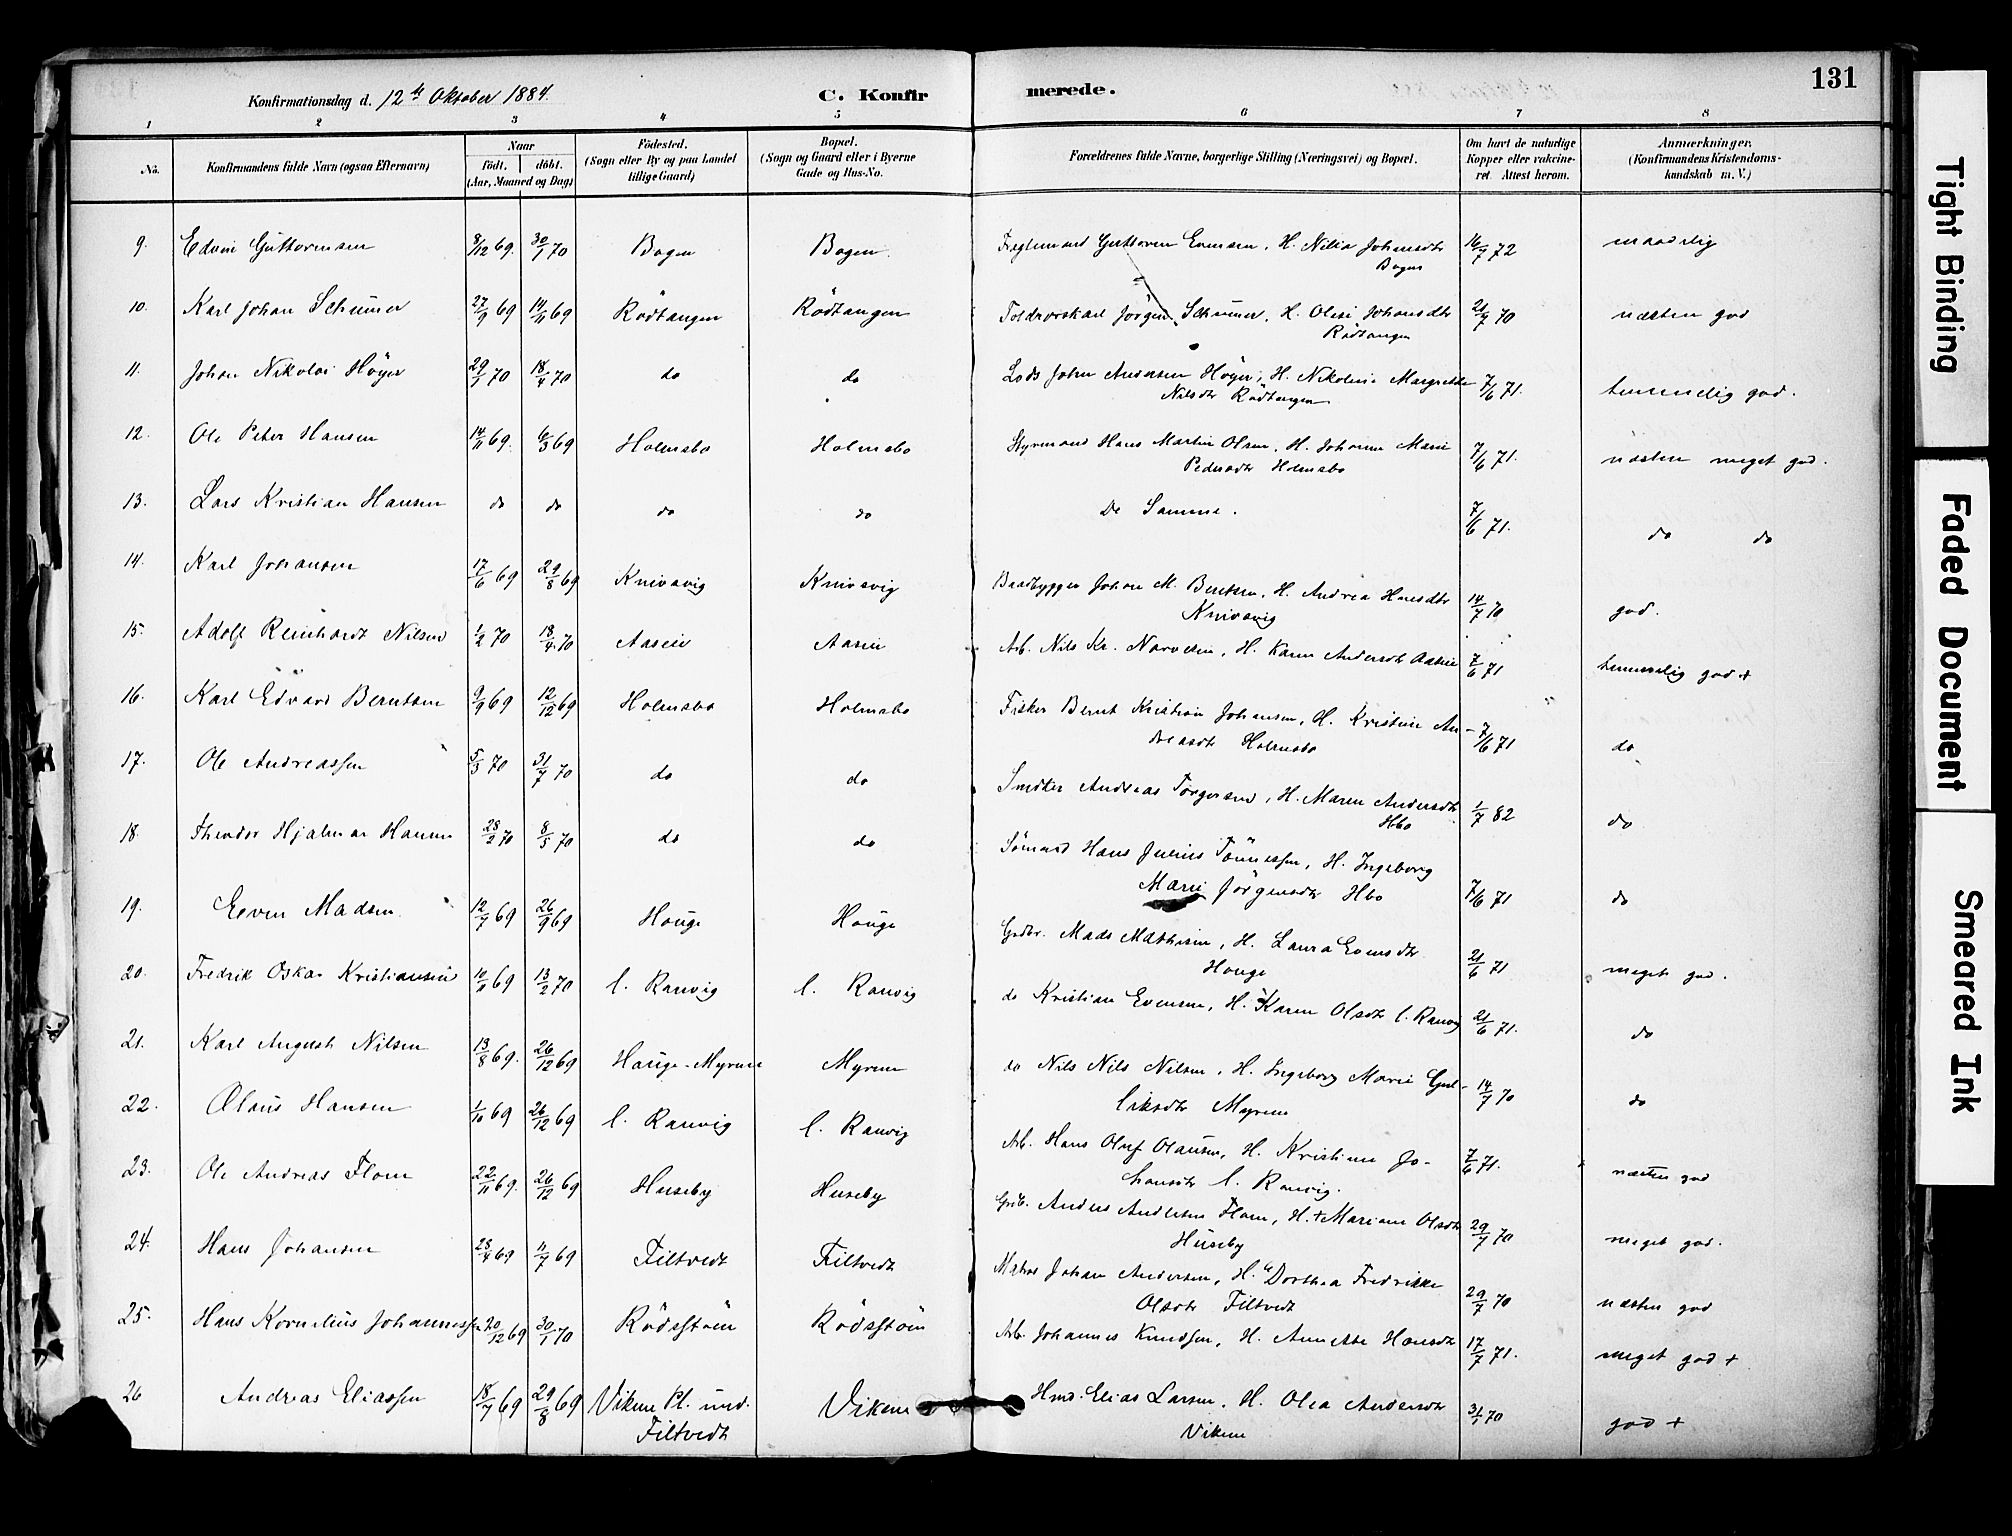 Konfirmationsdag d. 12te Oktober 1884. C. Konfirmerede. 131
1 2 3 4 5 6 7 8
No. Konfirmandens fulde Navn (ogsaa Efternavn) Naar født. døbt. (Aar, Maaned og Dag) Fødested. (Sogn eller By og paa Landet tillige Gaard) Bopæl. (Sogn og Gaard eller i Byerne Gade og Hus-No. Forældrenes fulde Navne, borgerlige Stilling (Næringsvei) og Bopæl. Om havt de naturlige Kopper eller vakcineret. Attest herom. Anmærkninger. (Konfirmandens Kristendomskundskab m. V.)
9. Edvin Guttormsen 8/12 69. 30/1 70 Bogen Bogen. Guttorm Evensen, H. Nilia Johnsdtr 16/7 72 maadelig
Bogen
10. Karl Johan Schumer 27/9 69 14/11 69 Rödtangen Rödtangen Toldrorskarl Jörgen Schumer, H. Olise Johansdtr 21/7 70 næsten god
Rödtangen
11. Johan Nikolai Höyer 29/1 70 18/4 70 do do Lods John Andersen Höyer, H. Nikoline Margrethe 7/6 71. temmelig god.
Nilsdtr Rödtangen
12. Ole Peter Hansen 14/11 69. 6/3 69 Holmsbo Holmsbo Styrmand Hans Martin Olsen, H. Johanne Marie 7/6 71. næsten meget god.
Pedersdtr Holmsbo
13. Lars Kristian Hansen do do do do De Samme. 7/6 71. do do
14. Karl Johansen 17/6 69 29/8 69 Knivsvig Knivsvig Baadbygger Johan M. Berntsen, H. Andrea Hansdtr 14/7 70 god.
Knivsvig
15. Adolf Reinhardt Nilsen 1/2 70 18/4 70 Aasen Aasen Arb. Nils Kr. Narvesen, H. Karen Andersdtr Aasen 7/6 71 temmelig god +
16. Karl Edvard Berntsen 9/9 69 12/12 69 Holmsbo Holmsbo Fisker Bernt Kristian Johansen, H. Kristine An- 7/6 71 do
dreasdtr Holmsbo
17. Ole Andreassen 5/3 70 31/7 70 do do Andreas Torgersen, H. Maren Andersdtr 1/7 82 do
Hbo
18. Theodor Hjalmar Hansen 28/2 70 8/5 70 do do Sømand Hans Julius Tönnessen, H. Ingeborg
Marie Jörgensdtr Hbo 7/6 71 do
19. Even Madsen 12/7 69 26/9 69 Houge Houge Grdbr. Mads Mathisen, H. Laura Evensdtr
Houge 21/6 71 meget god.
20. Fredrik Oskar Kristiansen 10/11 69 13/2 70 l. Ranvig l. Ranvig do Kristian Evensen, H. Karen Olsdtr l. Ranvig 21/6 71. do
21. Karl August Nilsen 13/8 69. 26/12 69 Houge-Myrene Myrene do Nils Nils Nilsen, H. Ingeborg Marie Gul- 14/7 70 do
liksdtr Myrene
22. Olaus Hansen 1/10 69 26/12 69 l. Ranvig l. Ranvig Arb. Hans Oluf Olausen, H. Kristine Jo- 7/6 71. næsten god
hansdtr l. Ranvig.
23. Ole Andreas Flom 22/11 69. 26/12 69 Huseby Huseby Grdb. Anders Andersen Flom, H. + Mariane Olsdtr 29/7 70 meget god.
Huseby
24. Hans Johansen 23/4 69 11/7 69 Filtvedt Filtvedt Matros Johan Andersen, H. Dorthea Fredrikke
Olsdtr Filtvedt 29/7 70 næsten god
25. Hans Kornelius Johannessen 20/12 69 30/1 70 Rödsstöen Rödsstöen Arb. Johannes Knudsen, H. Annethe Hansdtr 17/7 71. meget god +
26 Andreas Eliassen 18/7 69 29/8 69 Vikene Pl. und. Vikene Hmd. Elias Larsen, H. Olea Andersdtr 3/1 70 god +
Filtvedt Vikene
Tight Binding
Faded Document
Smeared Ink